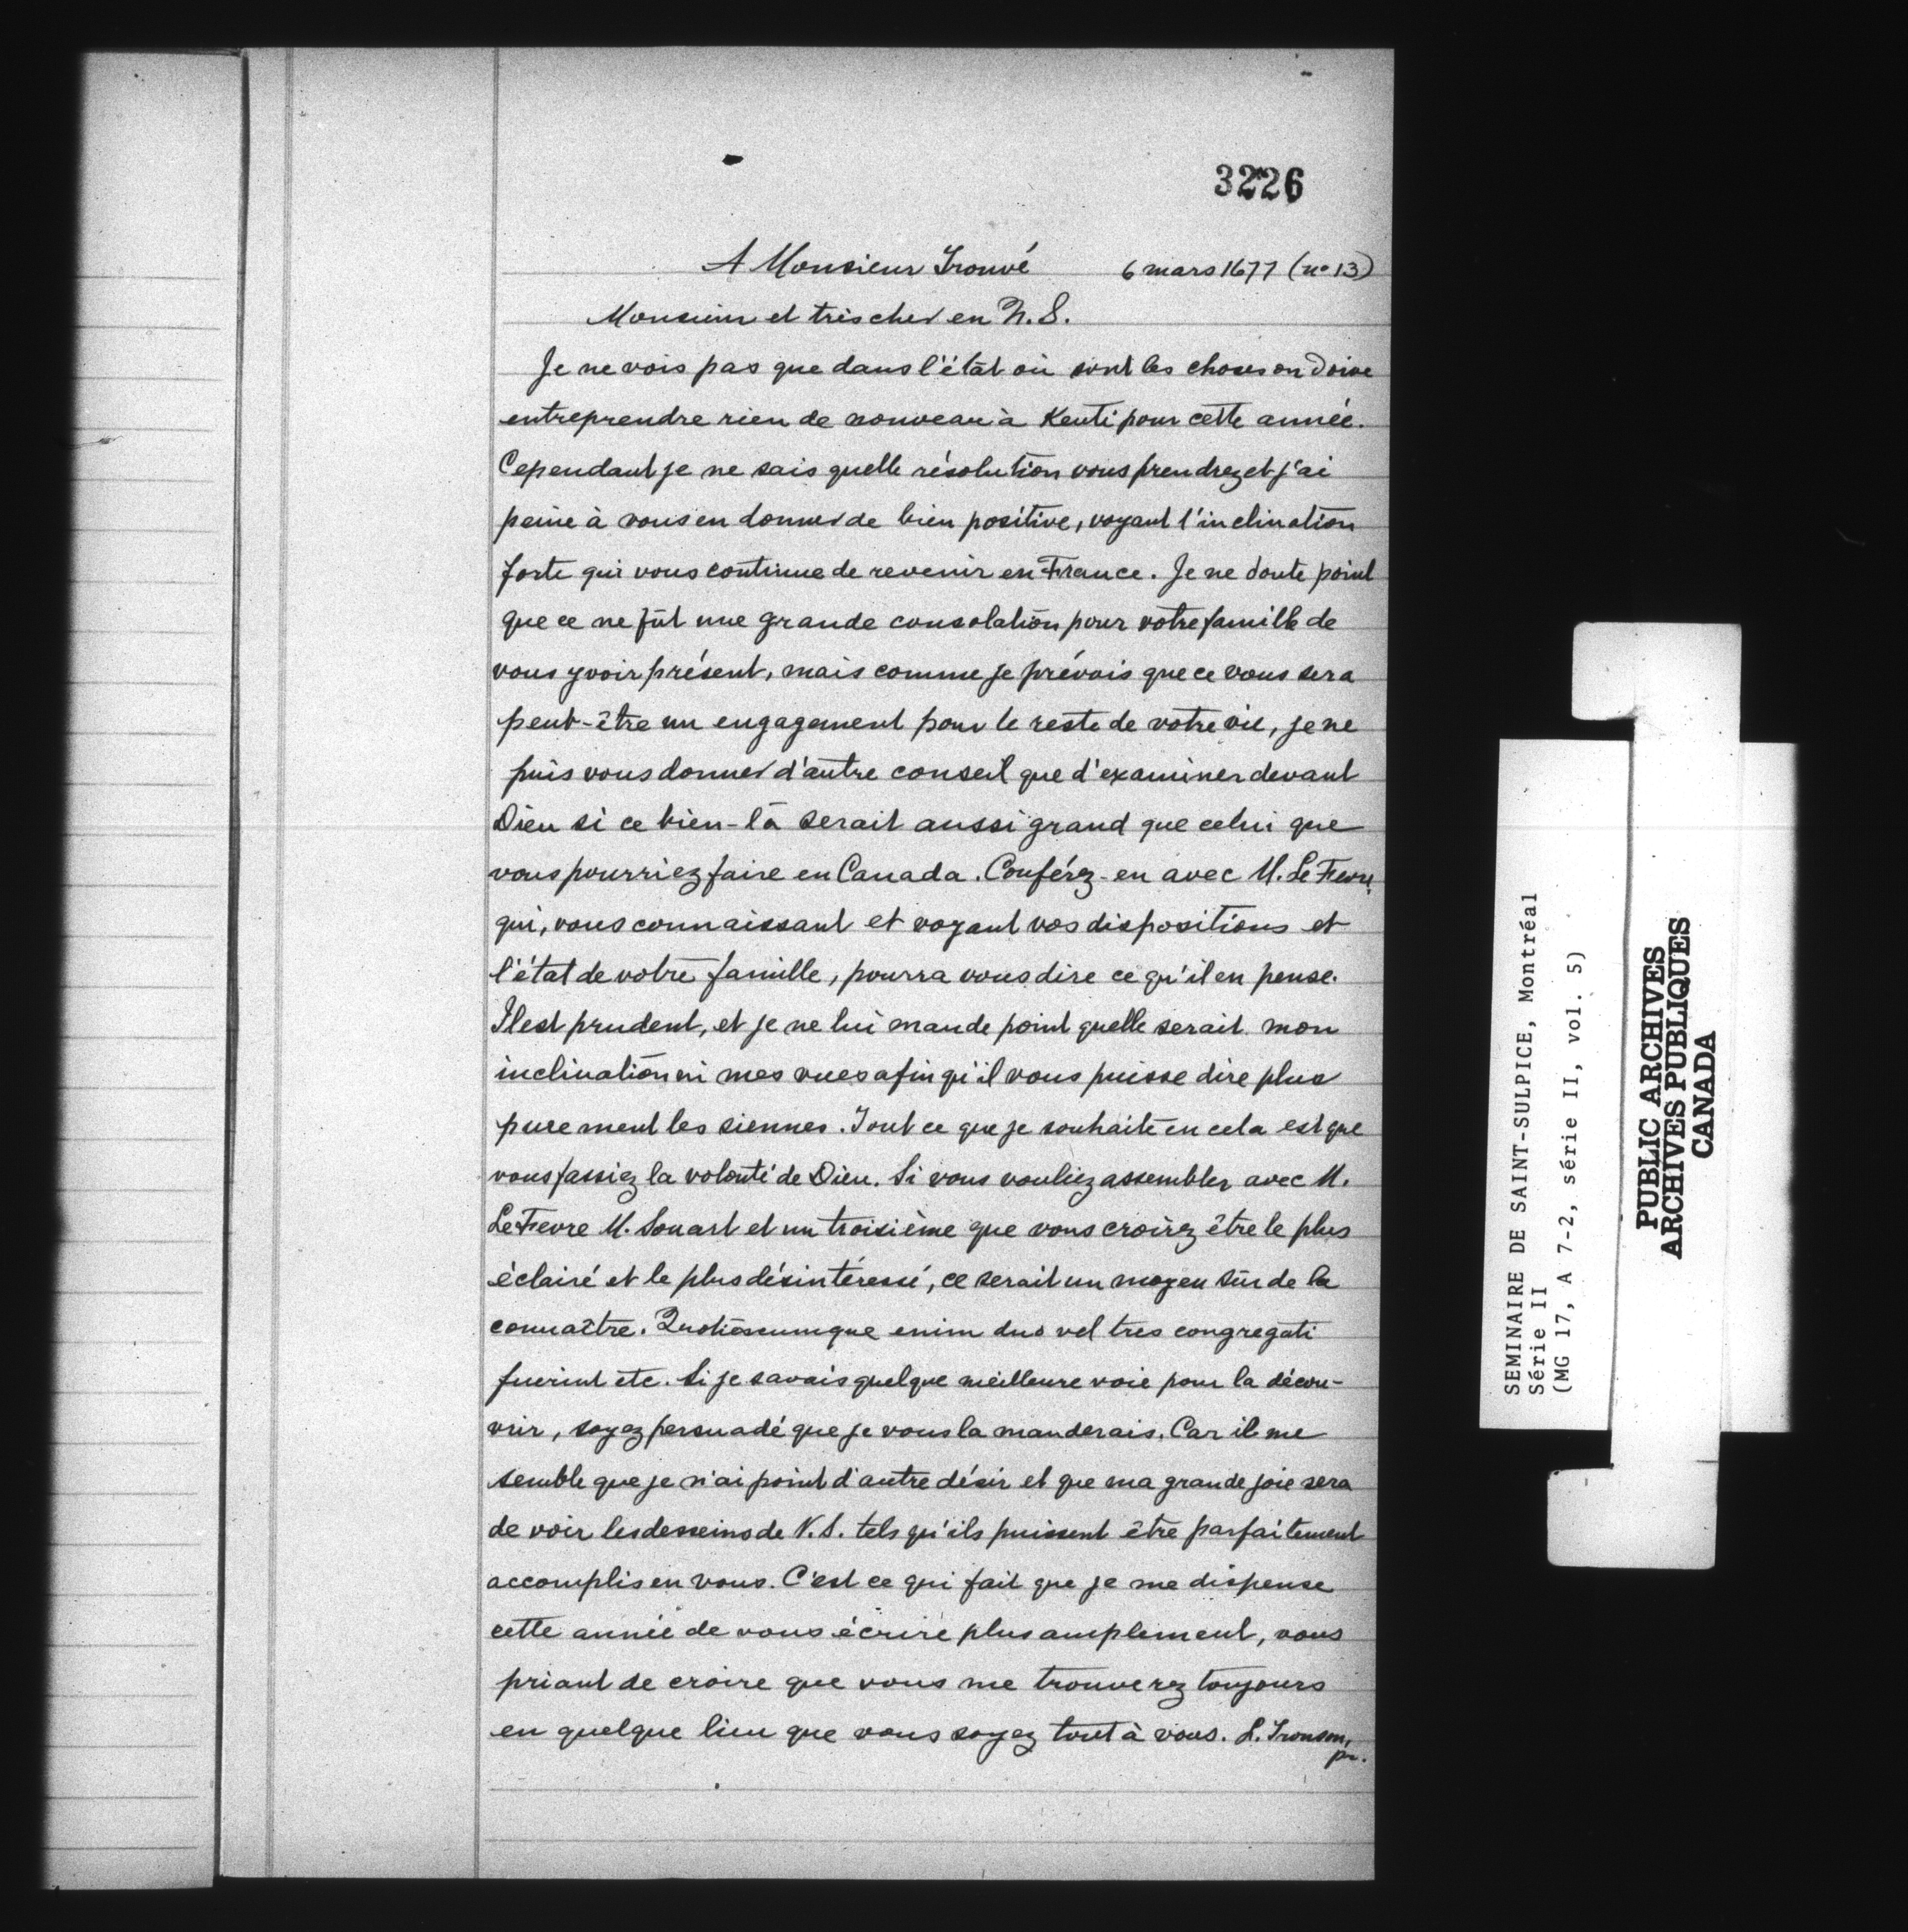 3226
A Monsieur Trouvé 6 mars 1677 (no 13)
Monsieur et très cher en N. S.
Je ne vois pas que dans l'état où sont les choses on doive
entreprendre rien de nouveau à Kenti pour cette année.
Cependant je ne sais quelle résolution vous prendrez et j'ai
peine à vous en donner de bien positive, voyant l'inclination
forte qui vous continue de revenir en France. Je ne doute point
que ce ne fût une grande consolation pour votre famille de
vous y voir présent, mais comme je prévois que ce vous sera
peut-être un engagement pour le reste de votre vie, je ne
puis vous donner d'autre conseil que d'examiner devant
Dieu si ce bien-là serait aussi grand que celui que
vous pourriez faire en Canada. Conférez-en avec M. Le Fevre,
qui, vous connaissant et voyant vos dispositions et
l'état de votre famille, pourra vous dire ce qu'il en pense.
Il est prudent, et je ne lui mande point quelle serait mon
inclination ni mes vues afin qu'il vous puisse dire plus
purement les siennes. Tout ce que je souhaite en cela est que
vous fassiez la volonté de Dieu. Si vous vouliez assembler avec M.
Le Fevre M. Souart et un troisième que vous croirez être le plus
éclairé et le plus désintéressé, ce serait un moyen sûr de la
connaître. Quotiescumque enim duo vel tres congregati
fuerint etc. Si je savais quelque meilleure voie pour la décou-
vrir, soyez persuadé que je vous la manderais. Car il me
semble que je n'ai point d'autre désir et que ma grande joie sera
de voir les desseins de N. S. tels qu'ils puissent être parfaitement
accomplis en vous. C'est ce qui fait que je me dispense
cette année de vous écrire plus amplement, vous
priant de croire que vous me trouverez toujours
en quelque lieu que vous soyez tout à vous. L. Tronson,
pr.
SEMINAIRE DE SAINT-SULPICE, Montréal
Série II
(MG 17, A 7-2, série II, vol. 5)
PUBLIC ARCHIVES
ARCHIVES PUBLIQUES
CANADA